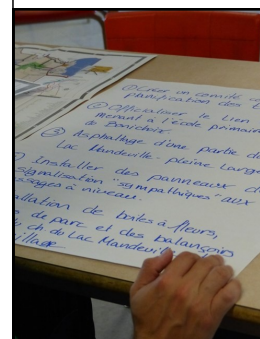 ① Créer un comité
planification des
② Officialiser le lien
menant à l'école primaire
à Bonichoix.
③ Asphaltage d'une partie du
Lac Mandeville - pleine largeur
Installer des panneaux de
signalisation "sympathiques" aux
passages à niveau.
allation de boîtes à fleurs,
de parc et des balançoires
ch. du Lac Mandeville
village